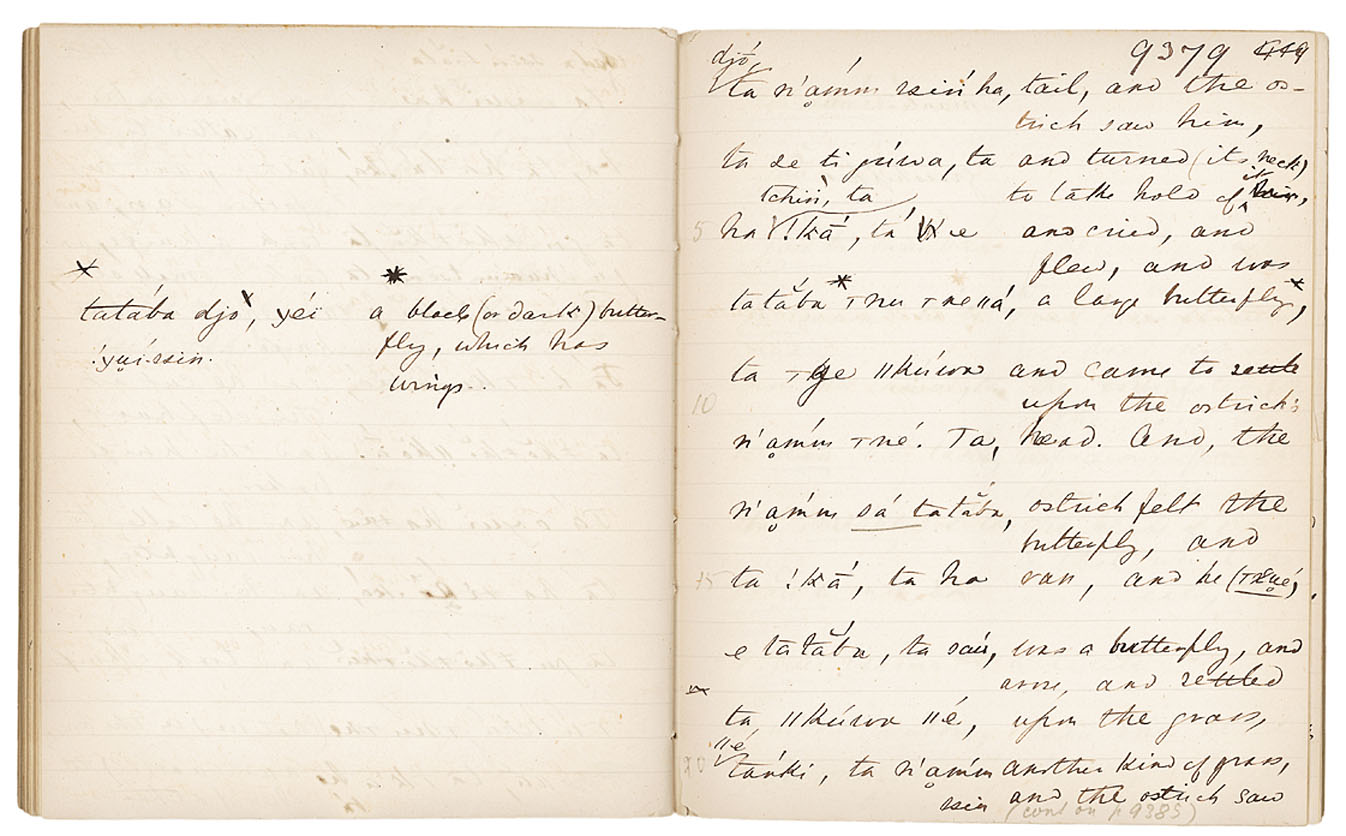 tatába djo, yéi a black (or dark) butter-
fly, which has
wings.
djó
9379
ta n'ạmm ssin ha, tail, and the os-
trich saw him,
ta se ti ta and turned (its neck)
tchiń, ta to take hold of it
5 ha !kā́, tá e and cried, and
flew, and was
tatăba a large butterfly,
ta ǁkúwa and came to settle
10 upon the ostrich's
n'ạmm Ta, head. And, the
n'ạmm sá tatăba, ostrich felt the
butterfly, and
15 ta !kā́, ta ha ran, and he
e tatăba, ta saú, was a butterfly, and
arose, and settled
ta ǁkúwa ǁé, upon the grass,
ǁé
20 tańki, ta n'ạmm another kind of grass,
ssin and the ostrich saw
(cont on p 9385)